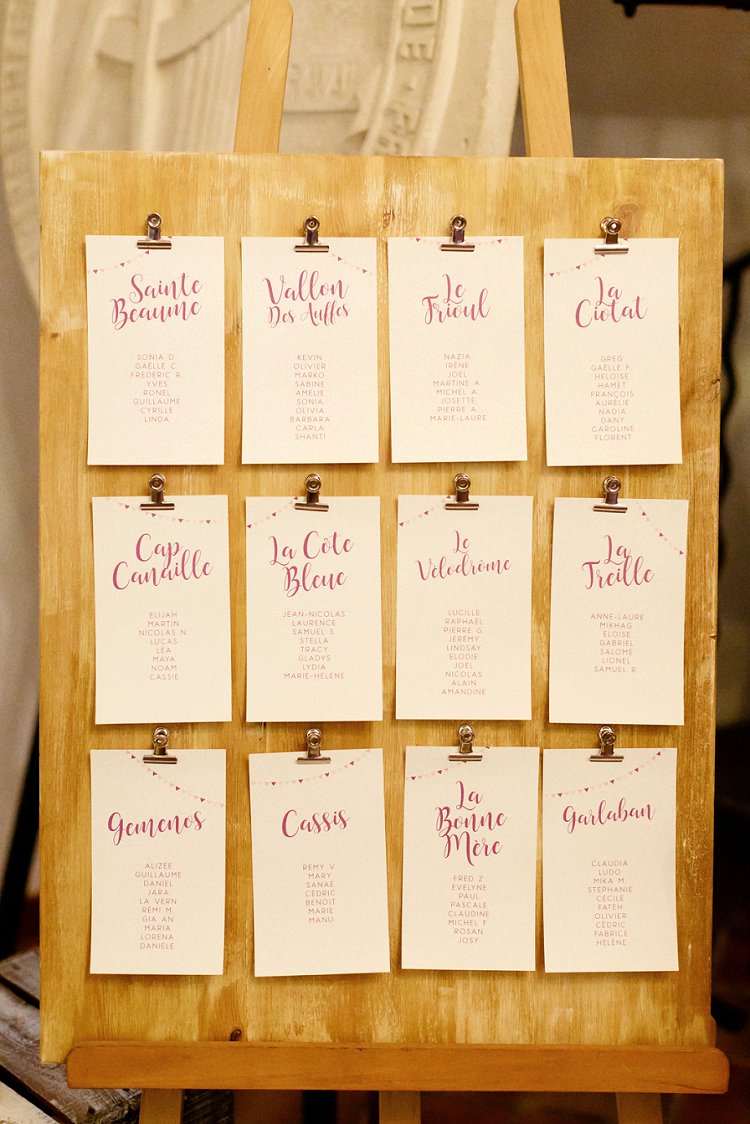 Sainte
Beaume
SONIA D
GAËLLE C
FRÉDÉRIC R
YVES
RONEL
GUILLAUME
CYRILLE
LINDA
Vallon
Des Auffes
KEVIN
OLIVIER
MARKO
SABINE
AMÉLIE
SONIA
OLIVIA
BARBARA
CARLA
SHANTI
Le
Frioul
NAZIA
IRÈNE
JOEL
MARTINE A
MICHEL A
JOSETTE
PIERRE A
MARIE-LAURE
La
Ciotat
GREG
GAËLLE F
HELOÏSE
HAMET
FRANÇOIS
AURÉLIE
NADIA
DANY
CAROLINE
FLORENT
Cap
Canaille
ELIJAH
MARTIN
NICOLAS N
LUCAS
LÉA
MAYA
NOAM
CASSIE
La Côte
Bleue
JEAN-NICOLAS
LAURENCE
SAMUEL S
STELLA
TRACY
GLADYS
LYDIA
MARIE-HÉLÈNE
Le
Vélodrôme
LUCILLE
RAPHAËL
PIERRE G
JEREMY
LINDSAY
ELODIE
JOEL
NICOLAS
ALAIN
AMANDINE
La
Treille
ANNE-LAURE
MIKHAG
ELOISE
GABRIEL
SALOMÉ
LIONEL
SAMUEL R.
Gemenos
ALIZÉE
GUILLAUME
DANIEL
JARA
LA VERN
RÉMI M
GIA AN
MARIA
LORENA
DANIELE
Cassis
REMY V
MARY
SANAE
CÉDRIC
BENOIT
MARIE
MANU
La
Bonne
Mère
FRED Z
EVELYNE
PAUL
PASCALE
CLAUDINE
MICHEL F
ROSAN
JOSY
Garlaban
CLAUDIA
LUDO
MIKA M
STEPHANIE
CÉCILE
FATEH
OLIVIER
CÉDRIC
FABRICE
HÉLÈNE